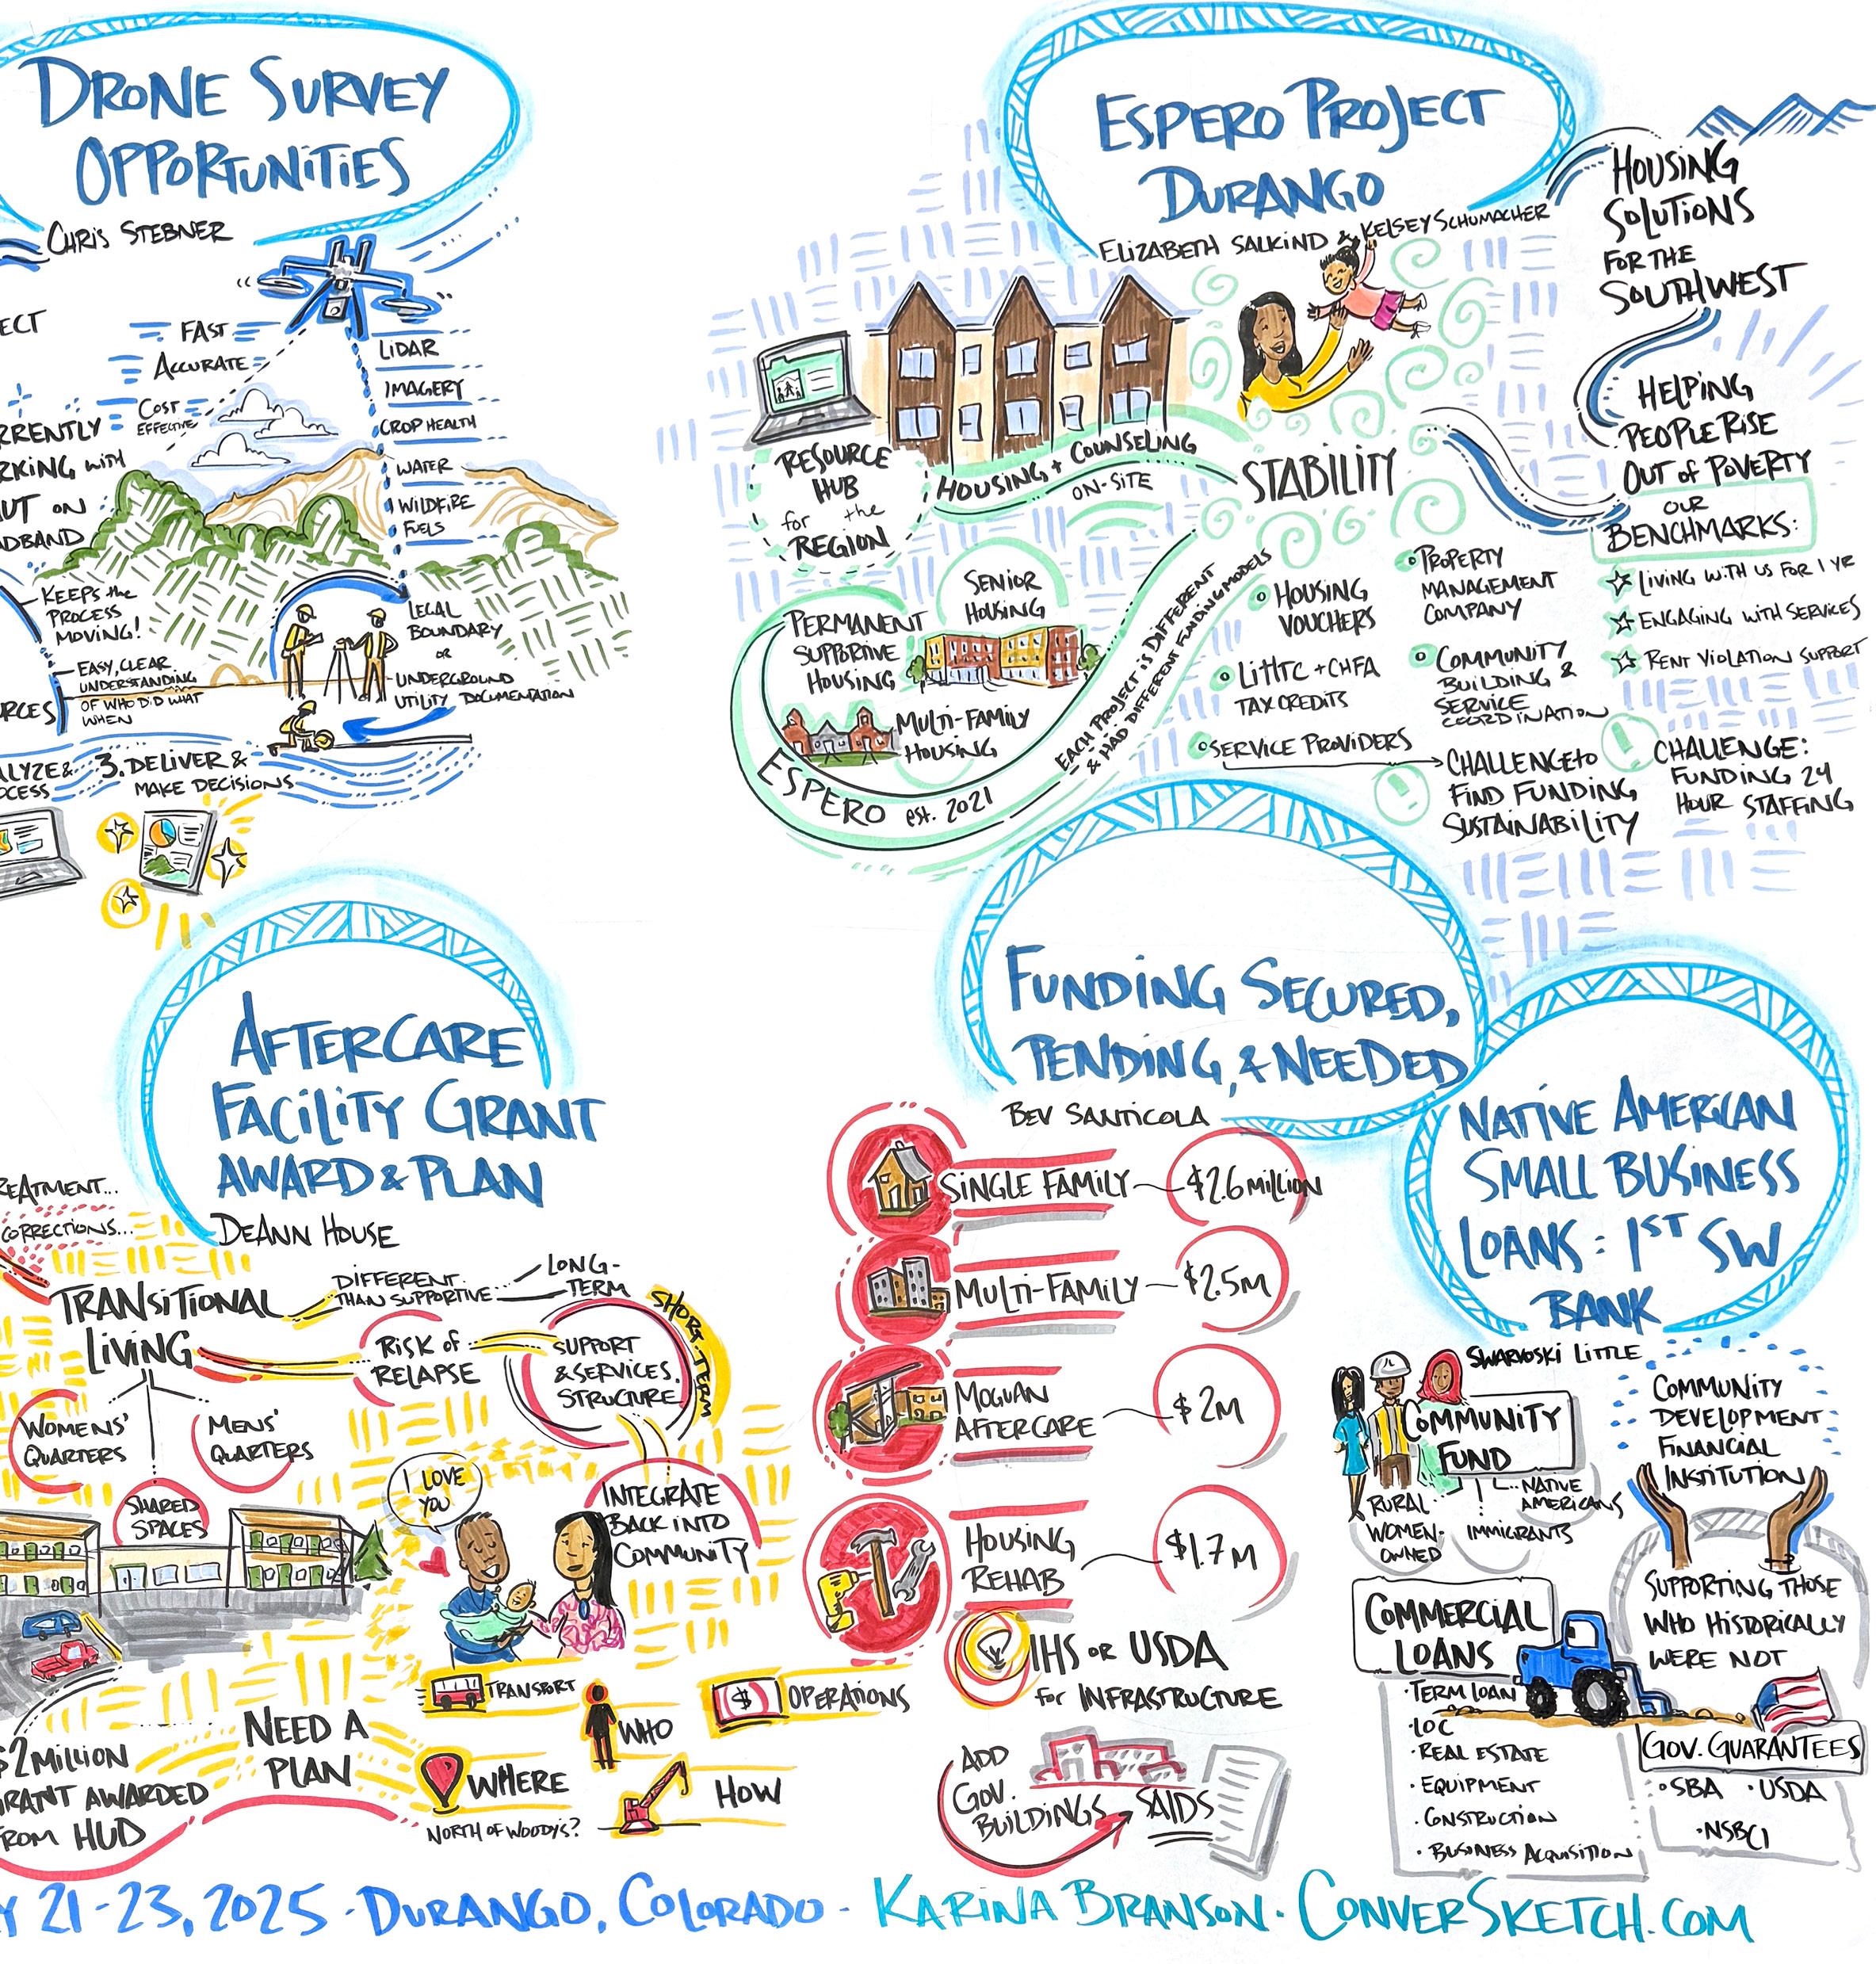 DRONE SURVEY
OPPORTUNITIES
CHRIS STEBNER
ECT
FAST
ACCURATE
COST
EFFECTIVE
LIDAR
IMAGERY
CROP HEALTH
WATER
WILDFIRE
FUELS
RRENTLY
RKING WITH
UT ON
ADBAND
KEEPS the
PROCESS
MOVING!
EASY, CLEAR
UNDERSTANDING
OF WHO DID WHAT
WHEN
URCES
LEGAL
BOUNDARY
OR
UNDERGROUND
UTILITY DOCUMENTATION
ALYZE &
OCESS
3. DELIVER &
MAKE DECISIONS
ESPERO PROJECT
DURANGO
ELIZABETH SALKIND & KELSEY SCHUMACHER
HOUSING
SOLUTIONS
FOR THE
SOUTHWEST
HELPING
PEOPLE RISE
OUT OF POVERTY
OUR
BENCHMARKS:
LIVING WITH US FOR 1 YR
ENGAGING WITH SERVICES
RENT VIOLATION SUPPORT
RESOURCE
HUB
for the
REGION
HOUSING + COUNSELING
ON-SITE
STABILITY
SENIOR
HOUSING
PERMANENT
SUPPORTIVE
HOUSING
MULTI-FAMILY
HOUSING
ESPERO est. 2021
EACH PROJECT IS DIFFERENT
& HAD DIFFERENT FUNDING MODELS
HOUSING
VOUCHERS
LIHTC + CHFA
TAX CREDITS
SERVICE PROVIDERS
PROPERTY
MANAGEMENT
COMPANY
COMMUNITY
BUILDING &
SERVICE
COORDINATION
CHALLENGE to
FIND FUNDING
SUSTAINABILITY
CHALLENGE:
FUNDING 24
HOUR STAFFING
AFTERCARE
FACILITY GRANT
AWARD & PLAN
DEANN HOUSE
REATMENT...
CORRECTIONS...
TRANSITIONAL
LIVING
DIFFERENT
THAN SUPPORTIVE
LONG-
TERM
SHORT-TERM
RISK OF
RELAPSE
SUPPORT
& SERVICES.
STRUCTURE
WOMENS'
QUARTERS
MENS'
QUARTERS
SHARED
SPACES
I LOVE
YOU
INTEGRATE
BACK INTO
COMMUNITY
$2 MILLION
GRANT AWARDED
FROM HUD
NEED A
PLAN
TRANSPORT
WHO
$
OPERATIONS
WHERE
NORTH OF WOODY'S?
HOW
FUNDING SECURED,
PENDING, & NEEDED
BEV SANTICOLA
SINGLE FAMILY
$2.6 MILLION
MULTI-FAMILY
$2.5M
MOGUAN
AFTERCARE
$2M
HOUSING
REHAB
$1.7M
IHS OR USDA
for INFRASTRUCTURE
ADD
GOV.
BUILDINGS
SAIDS
NATIVE AMERICAN
SMALL BUSINESS
LOANS: 1ST SW
BANK
SWARVOSKI LITTLE
COMMUNITY
FUND
RURAL
WOMEN-
OWNED
IMMIGRANTS
NATIVE
AMERICANS
COMMUNITY
DEVELOPMENT
FINANCIAL
INSTITUTION
SUPPORTING THOSE
WHO HISTORICALLY
WERE NOT
COMMERCIAL
LOANS
· TERM LOAN
· LOC
· REAL ESTATE
· EQUIPMENT
· CONSTRUCTION
· BUSINESS ACQUISITION
GOV. GUARANTEES
· SBA · USDA
· NSBCI
Y 21-23, 2025 · DURANGO, COLORADO - KARINA BRANSON · CONVERSKETCH.COM